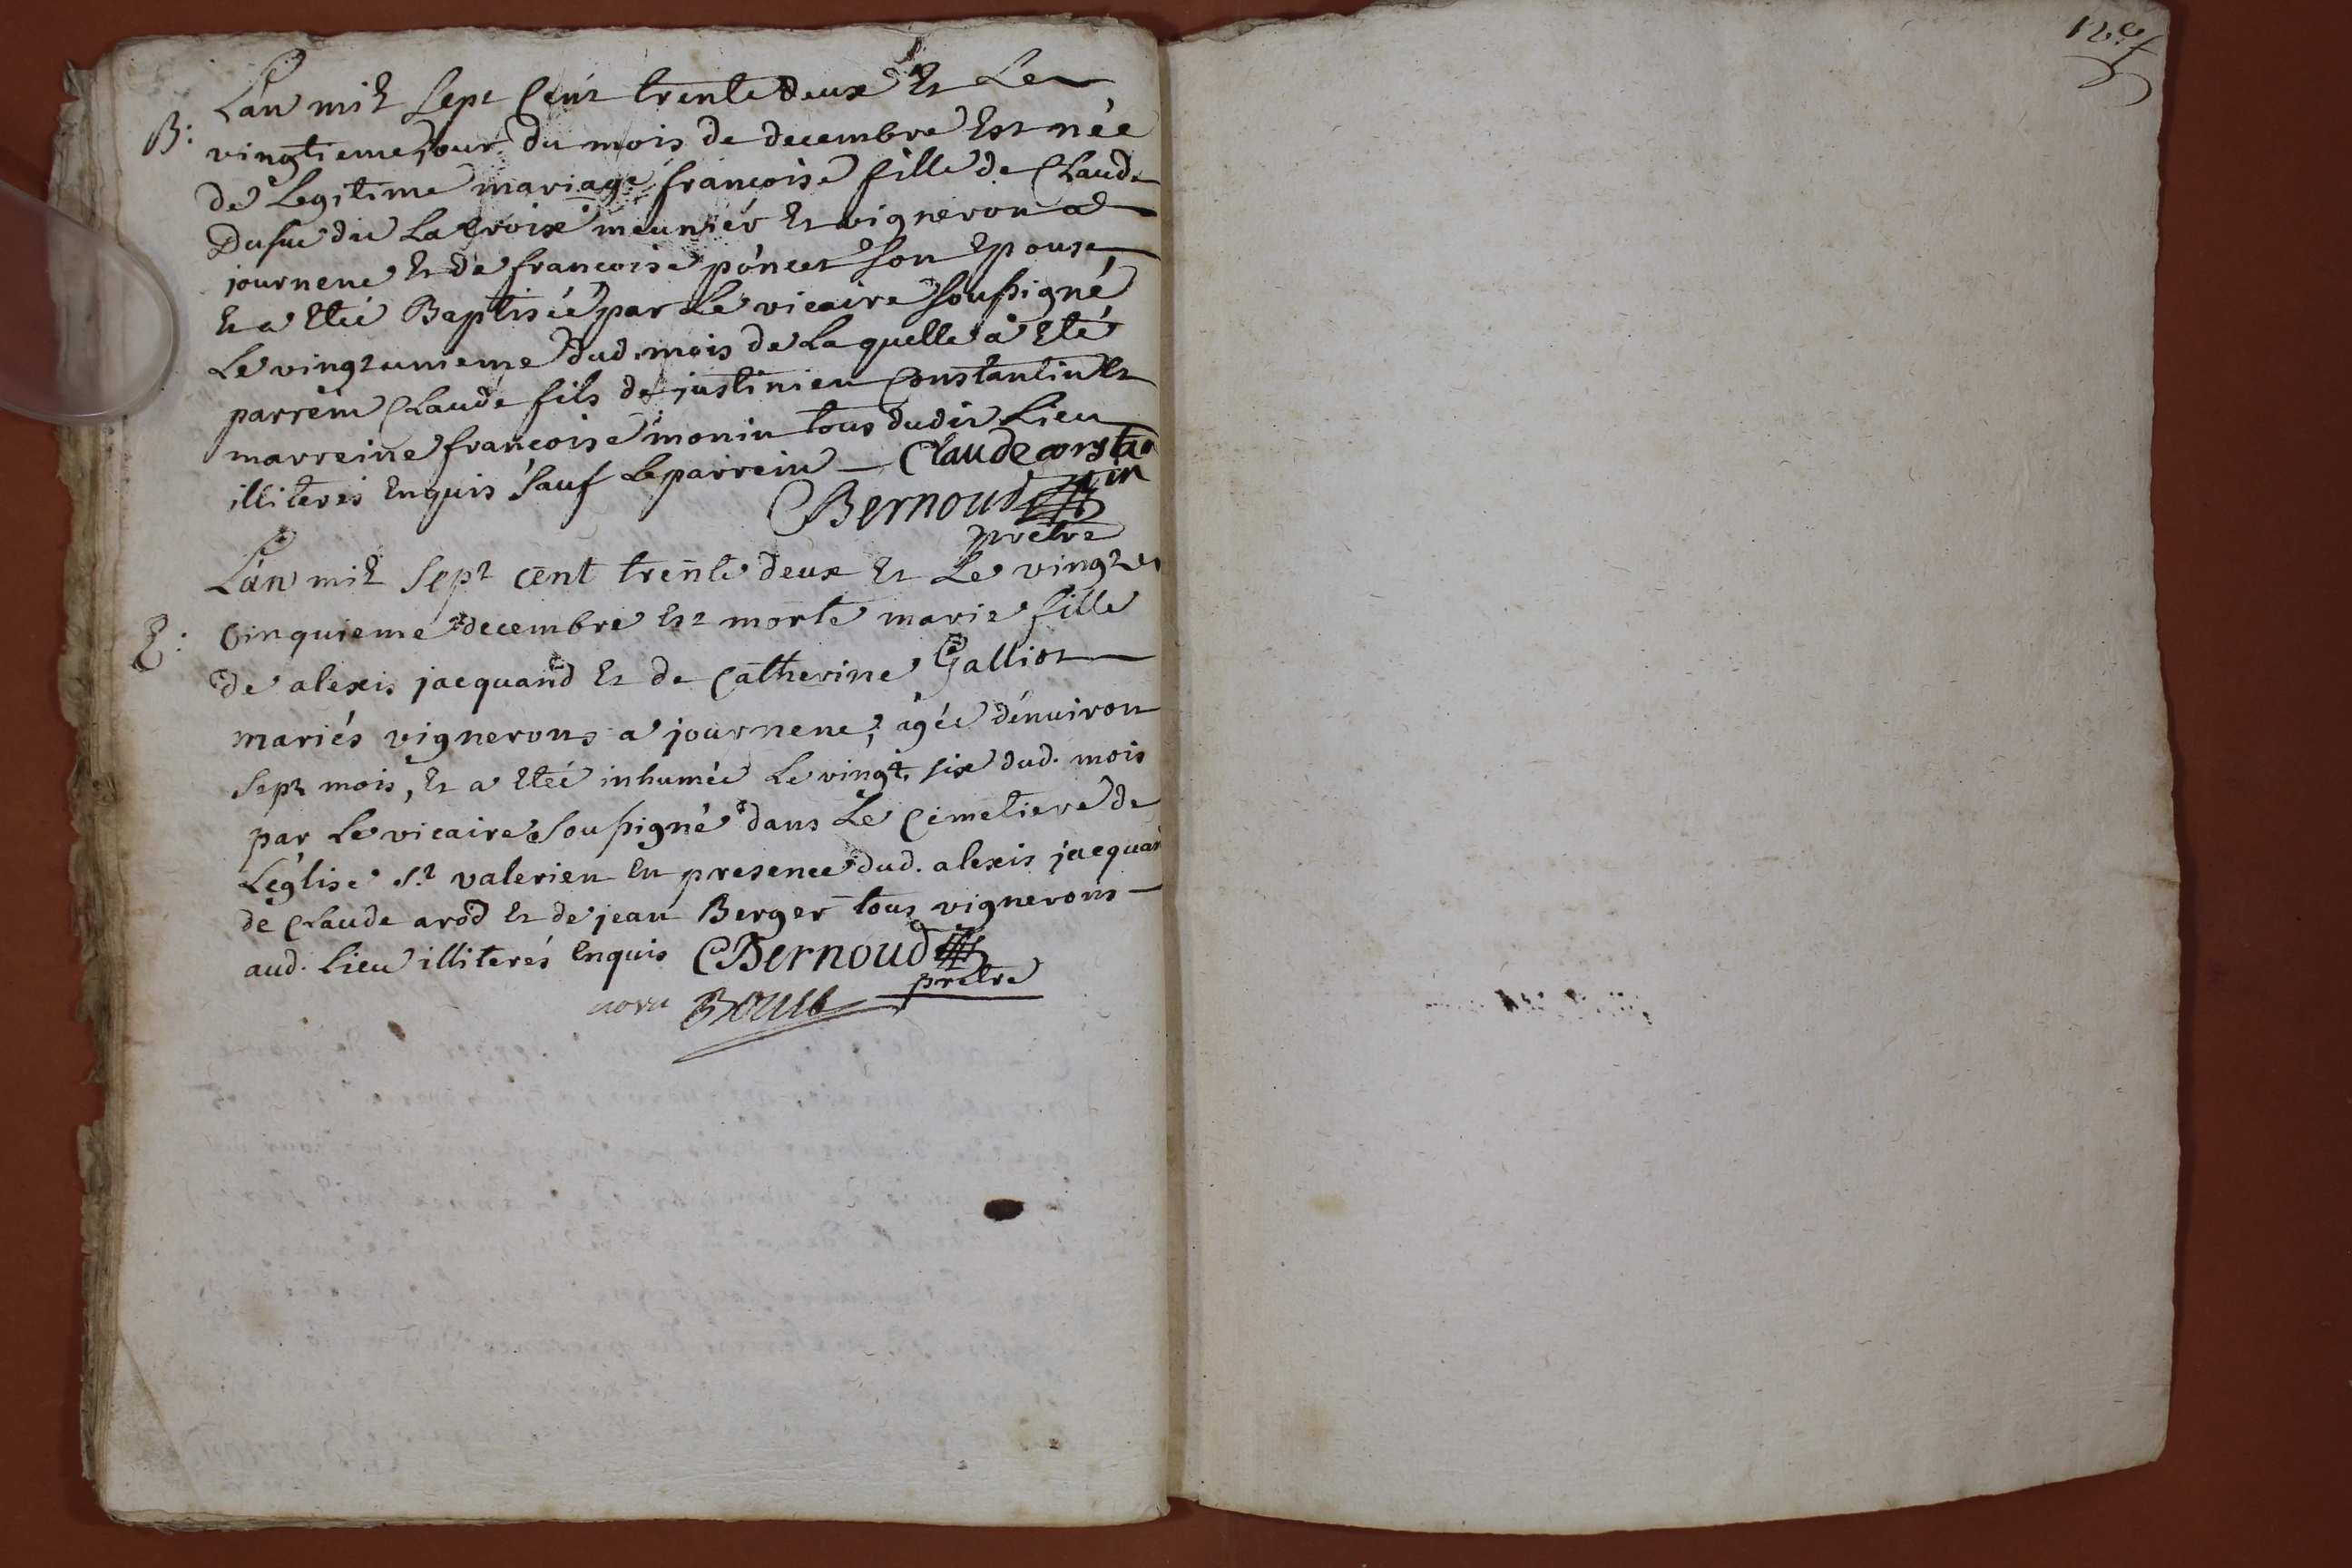 L'an mil sept cent trente deux et Le
B: vingtieme jour du mois de decembre est née
de Legitime mariage françoise fille de Claude
Dusuc dit La croix meunier et vigneron a
journene et de francoise poncet son epouse,
et a eteé Baptiseé par Le vicaire soussigné
Le vingt unieme dud. mois de Laquelle a eté
parrein Claude fils de justinien Constantin et
marreine francoise monin tous dudit Lieu
illiterés enquis sauf Le parrein — Claude constan
tin
Bernoud
prêtre
L'an mil sept cent trente deux et Le vingt
E: cinquieme decembre est morte marie fille
de alexis jacquand et de Catherine Galliot
mariés vignerons a journene, âgée d'environ
sept mois, et a eteé inhumée Le vingt six dud. mois
par Le vicaire soussigné dans Le Cimetiere de
L'église st valerien en presence dud. alexis jacquan
de Claude arod et de jean Berger tous vignerons
aud. Lieu illiterés enquis Bernoud
prêtre